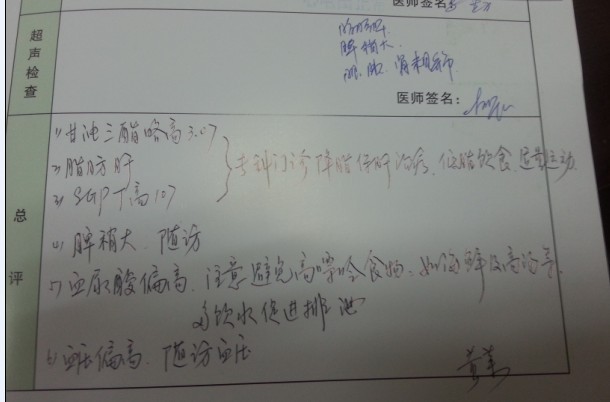 医师签名:
超声检查
脂肪肝.
脾稍大.
胆、胰、肾未见异常
医师签名:
总评
1) 甘油三酯略高3.07
2) 脂肪肝
3) SGPT高107
专科门诊降脂保肝治疗、低脂饮食、适量运动.
4) 脾稍大、随访
5) 血尿酸偏高、注意避免高嘌呤食物、如海鲜及高汤等.
多饮水促进排泄
6) 血压偏高、随访血压